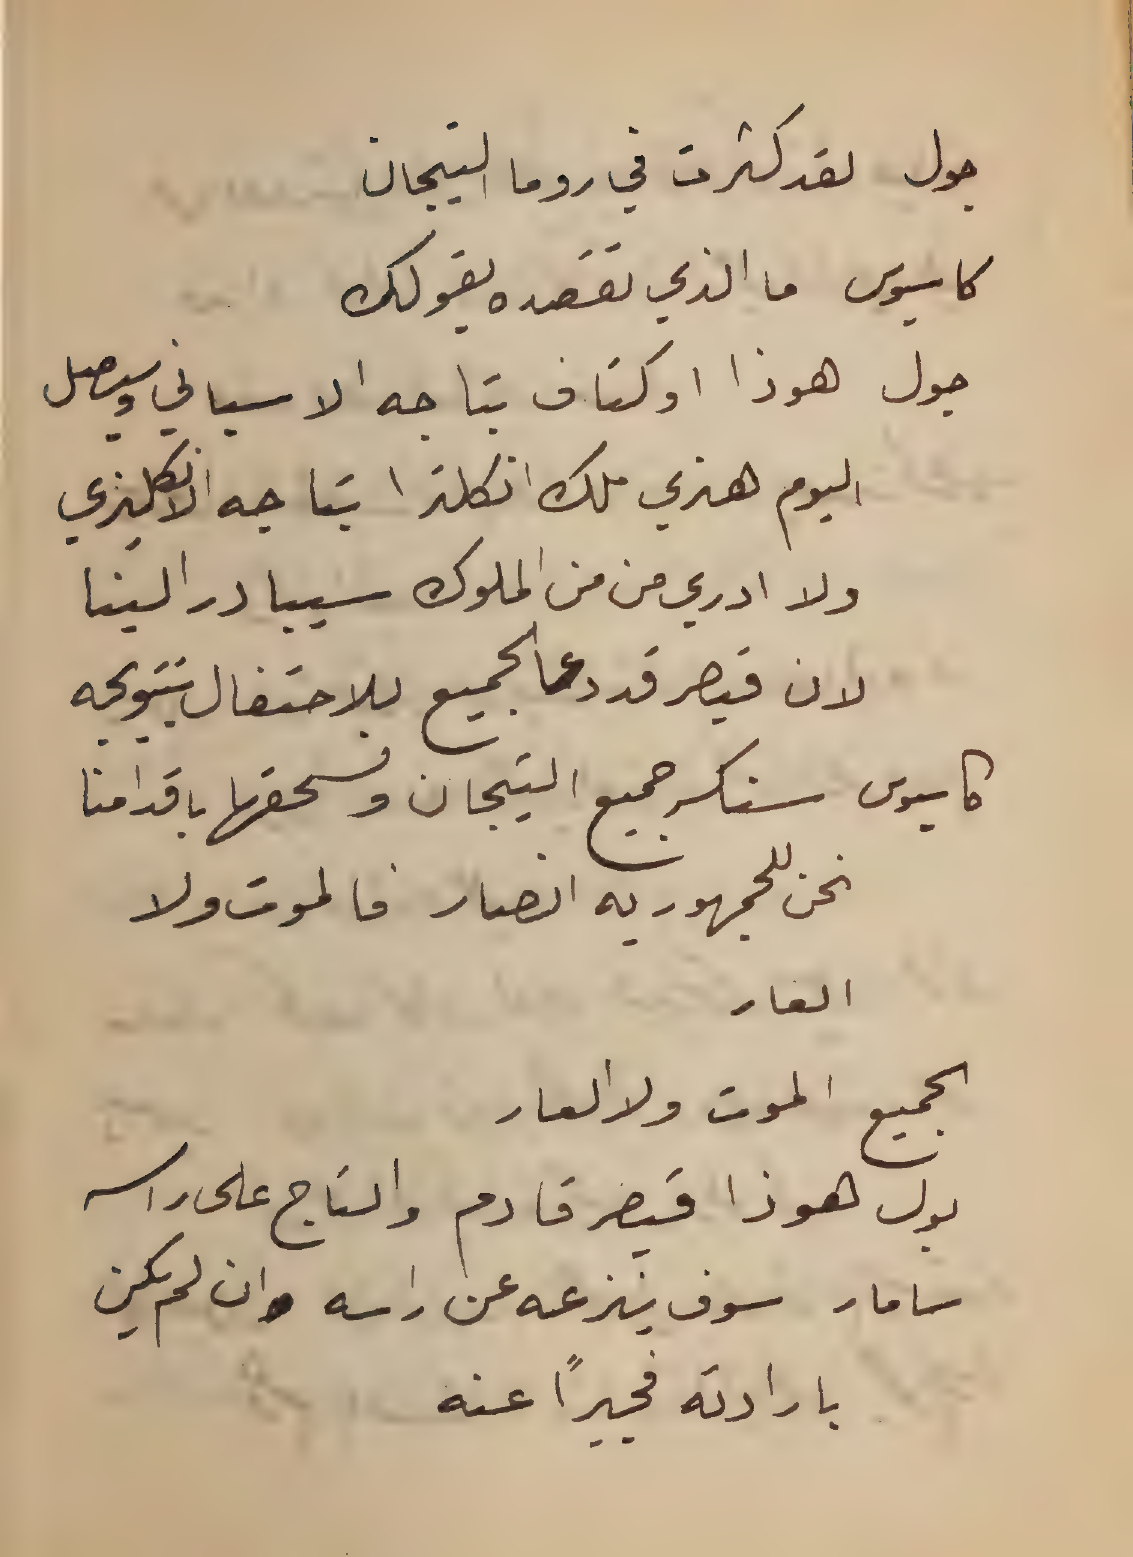 جول لقد كثرت في روما التيجان
كاسيوس ما الذي تقصده بقولك
جول هوذا اوكتاف بتاجه الاسباني ويصل
اليوم هنري ملك انكلترا بتاجه الانكليزي
ولا ادري من من الملوك سيبادر الينا
لان قيصر قد دعا الجميع للاحتفال بتتويجه
كاسيوس سنكسر جميع التيجان ونسحقها باقدامنا
نحن للجمهوريه انصار فالموت ولا
العار
الجميع الموت ولا العار
بول هوذا قيصر قادم والتاج على راسه
سامار سوف ينزعه عن راسه وان لم يكن
بارادته فجبيرًا عنه